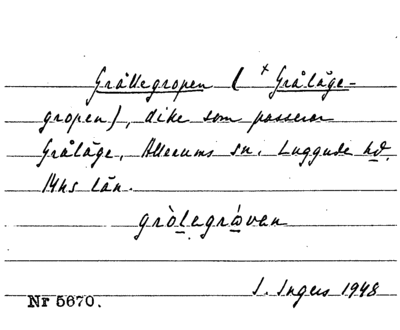 Gråttegropen ( + Gråläge-
gropen), dike som passerar
Gråläge, Allerums sn. Luggude hd.
Mhs län.
gròlegráven
I. Ingers 1948
Nr 5670.